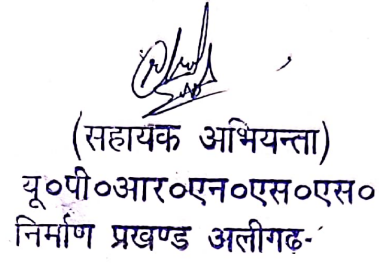 (सहायक अभियन्ता)
यू०पी०आर०एन०एस०एस०
निर्माण प्रखण्ड अलीगढ़-